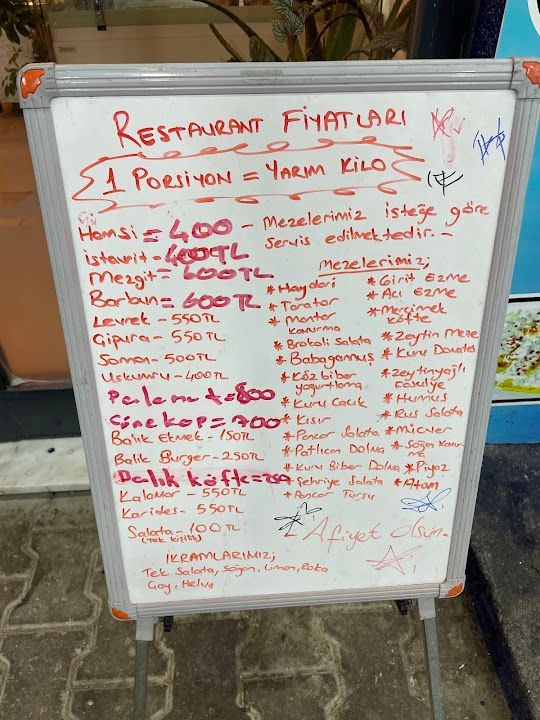 RESTAURANT FİYATLARI
1 PORSİYON = YARIM KİLO
Hamsi = 400
istavrit = 400TL
Mezgit = 600TL
Barbun = 600TL
Levrek - 550TL
Çipura - 550TL
Somon - 500TL
Uskumru - 400TL
Palamut = 800
Çinekop = 700
Balık Ekmek - 150TL
Balık Burger - 250TL
Balık köfte =
Kalamar - 550TL
Karides - 550TL
Salata - 100TL
(Tek kişilik)
İKRAMLARIMIZ;
Tek Salata, Soğan, Limon, Roka
Çay, Helva
- Mezelerimiz isteğe göre
servis edilmektedir. -
Mezelerimiz;
* Haydari
* Tarator
* Mantar
kavurma
* Brokoli Salata
* Babagannuş
* Köz biber
yoğurtlama
* Kuru Cacık
* Kısır
* Pancar Salata
* Patlıcan Dolma
* Kuru Biber Dolma
* Şehriye Salata
* Pancar Turşu
* Girit Ezme
* Acı Ezme
* Mercimek
köfte
* Zeytin Meze
* Kuru Domates
* Zeytinyağlı
fasulye
* Humus
* Rus Salata
* Mücver
* Soğan Kavur-
ma
* Piyaz
* Atom
- Afiyet olsun -